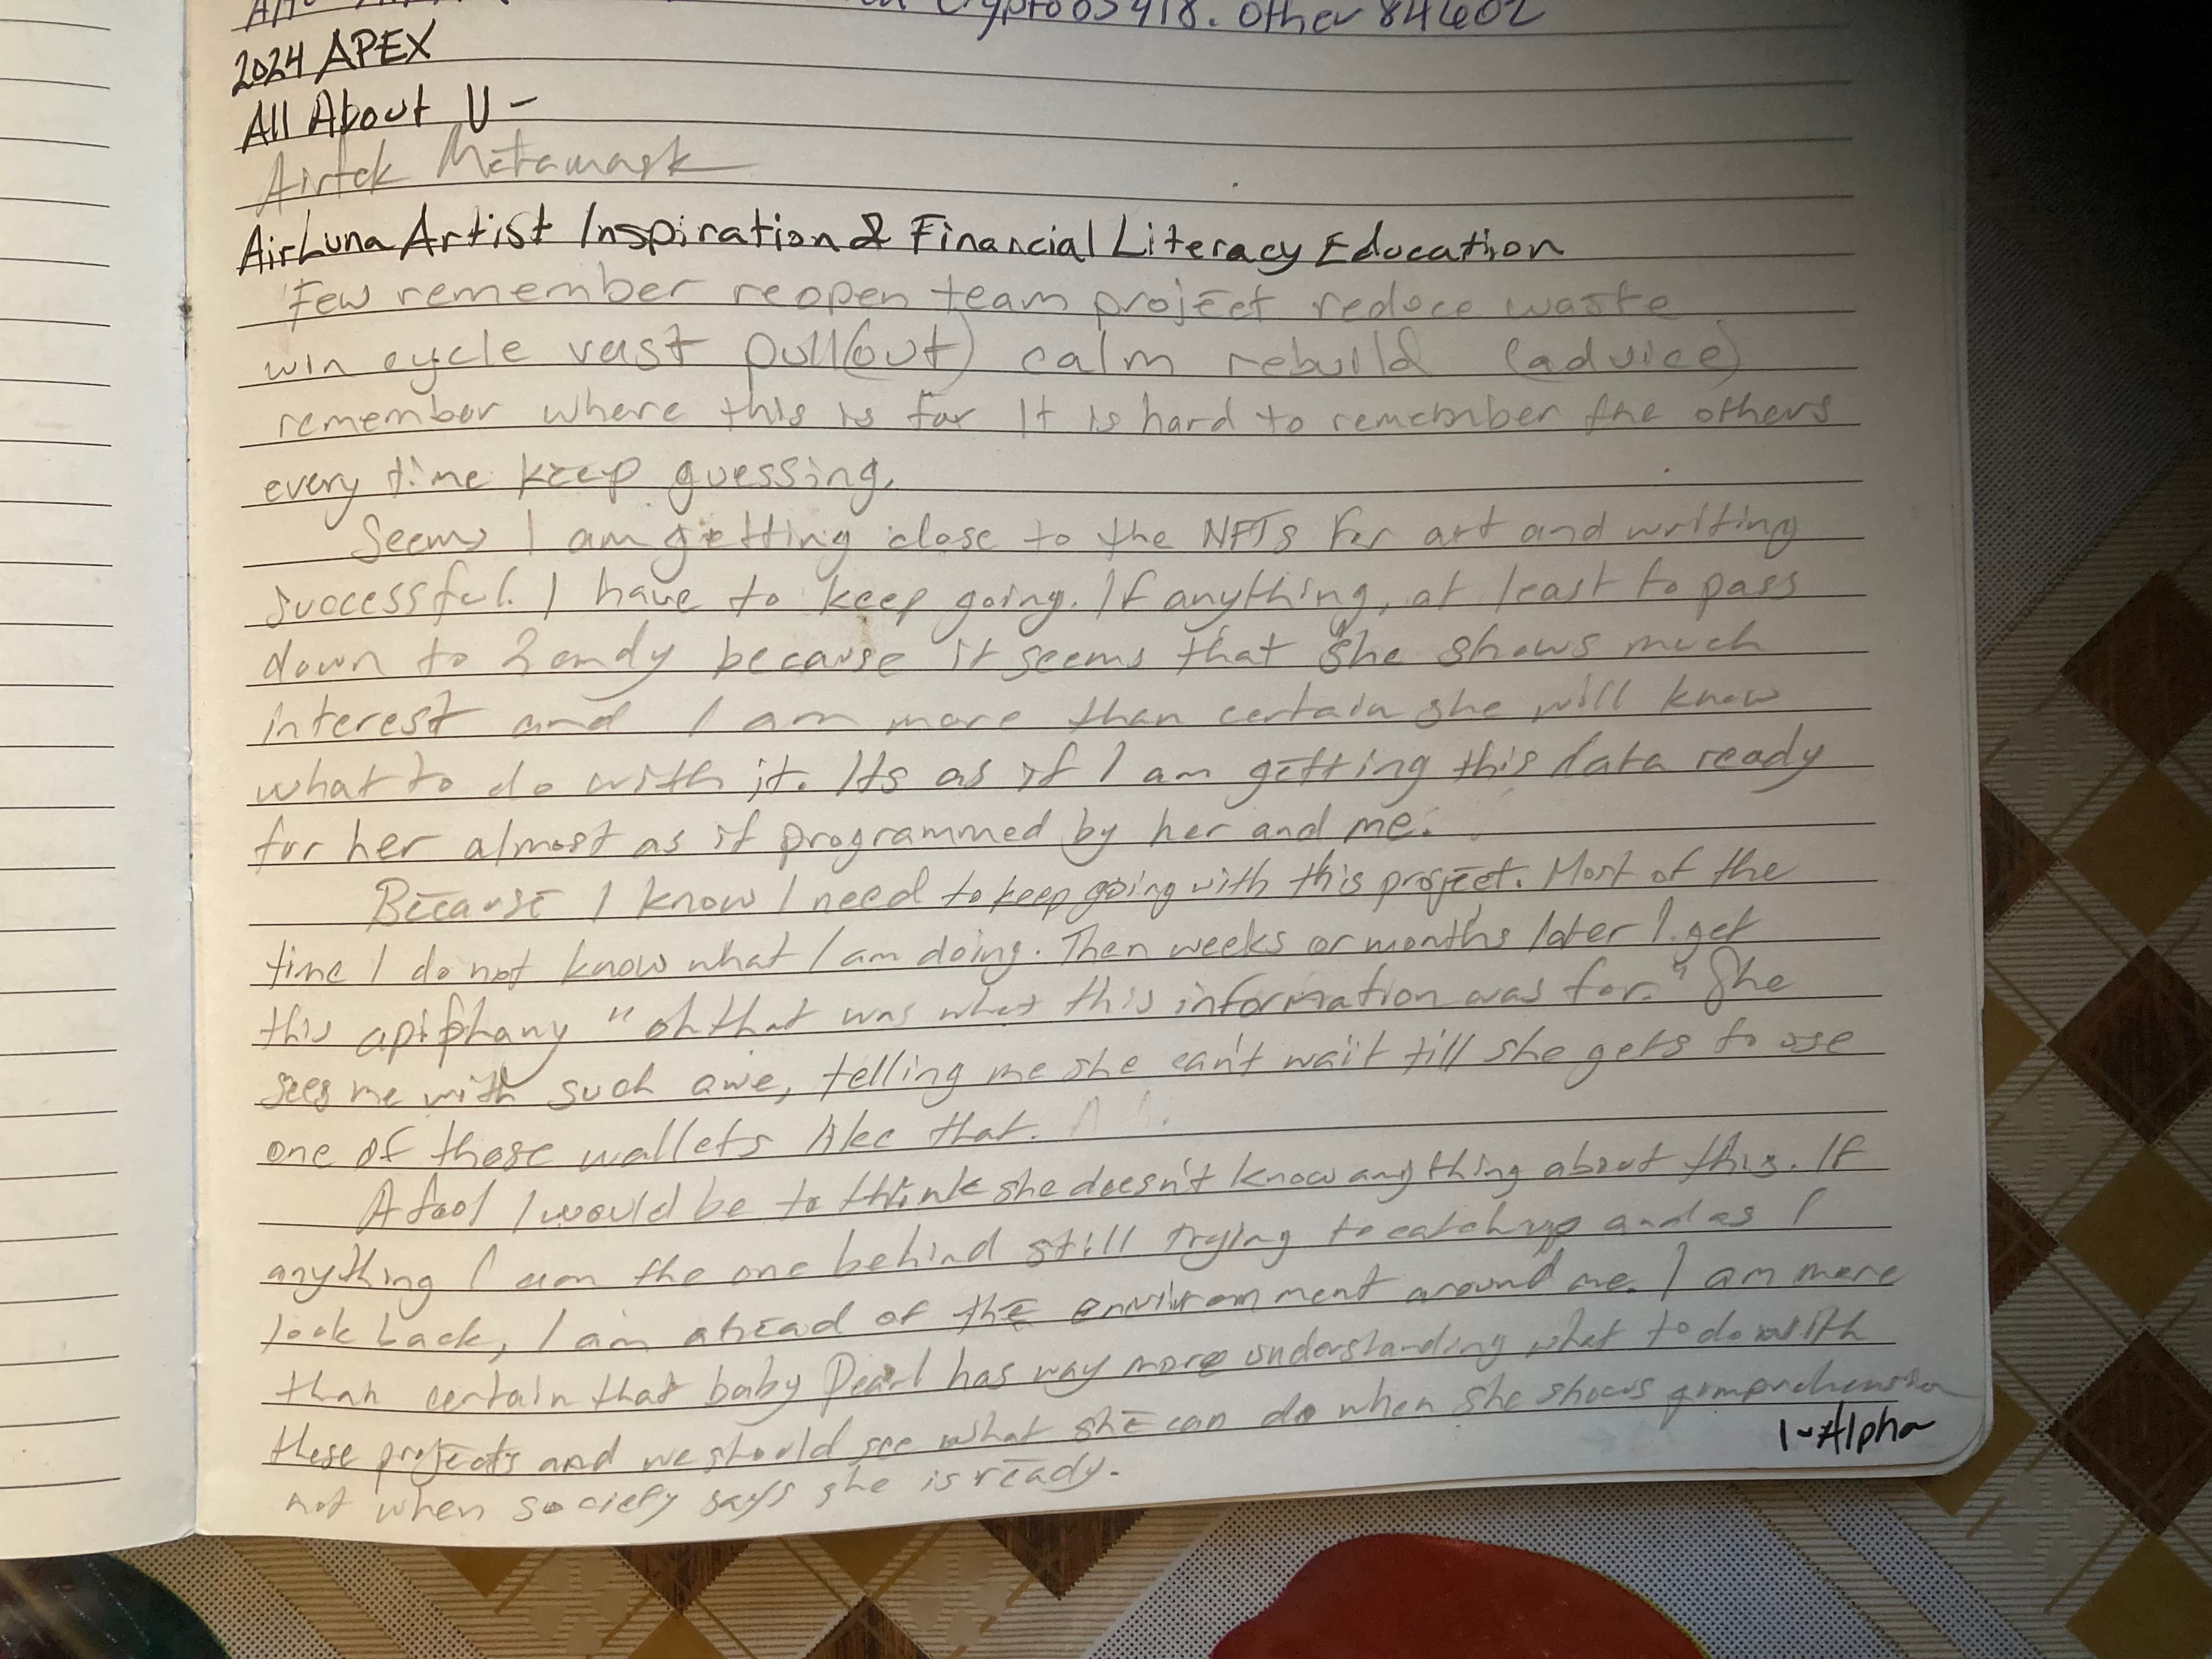 Crypto05918. Other 84602
2024 APEX
All About U -
Airtek Metamask
AirLuna Artist Inspiration & Financial Literacy Education
Few remember reopen team project reduce waste
win cycle vast pull(out) calm rebuild (advice)
remember where this is for It is hard to remember the others
every time keep guessing.
Seems I am getting close to the NFTs for art and writing
successful. I have to keep going. If anything, at least to pass
down to because it seems that she shows much
interest and I am more than certain she will know
what to do with it. Its as if I am getting this data ready
for her almost as if programmed by her and me.
Because I know I need to keep going with this project. Most of the
time I do not know what I am doing. Then weeks or months later I get
this apiphany "oh that was what this information was for." She
sees me with such awe, telling me she can't wait till she gets to use
one of those wallets like that.
A fool I would be to think she doesn't know anything about this. If
anything I am the one behind still trying to catch up and as I
look back, I am ahead of the environment around me. I am more
than certain that baby Pearl has way more understanding what to do with
these projects and we should see what she can do when she shows comprehension
1-Alpha
not when society says she is ready.